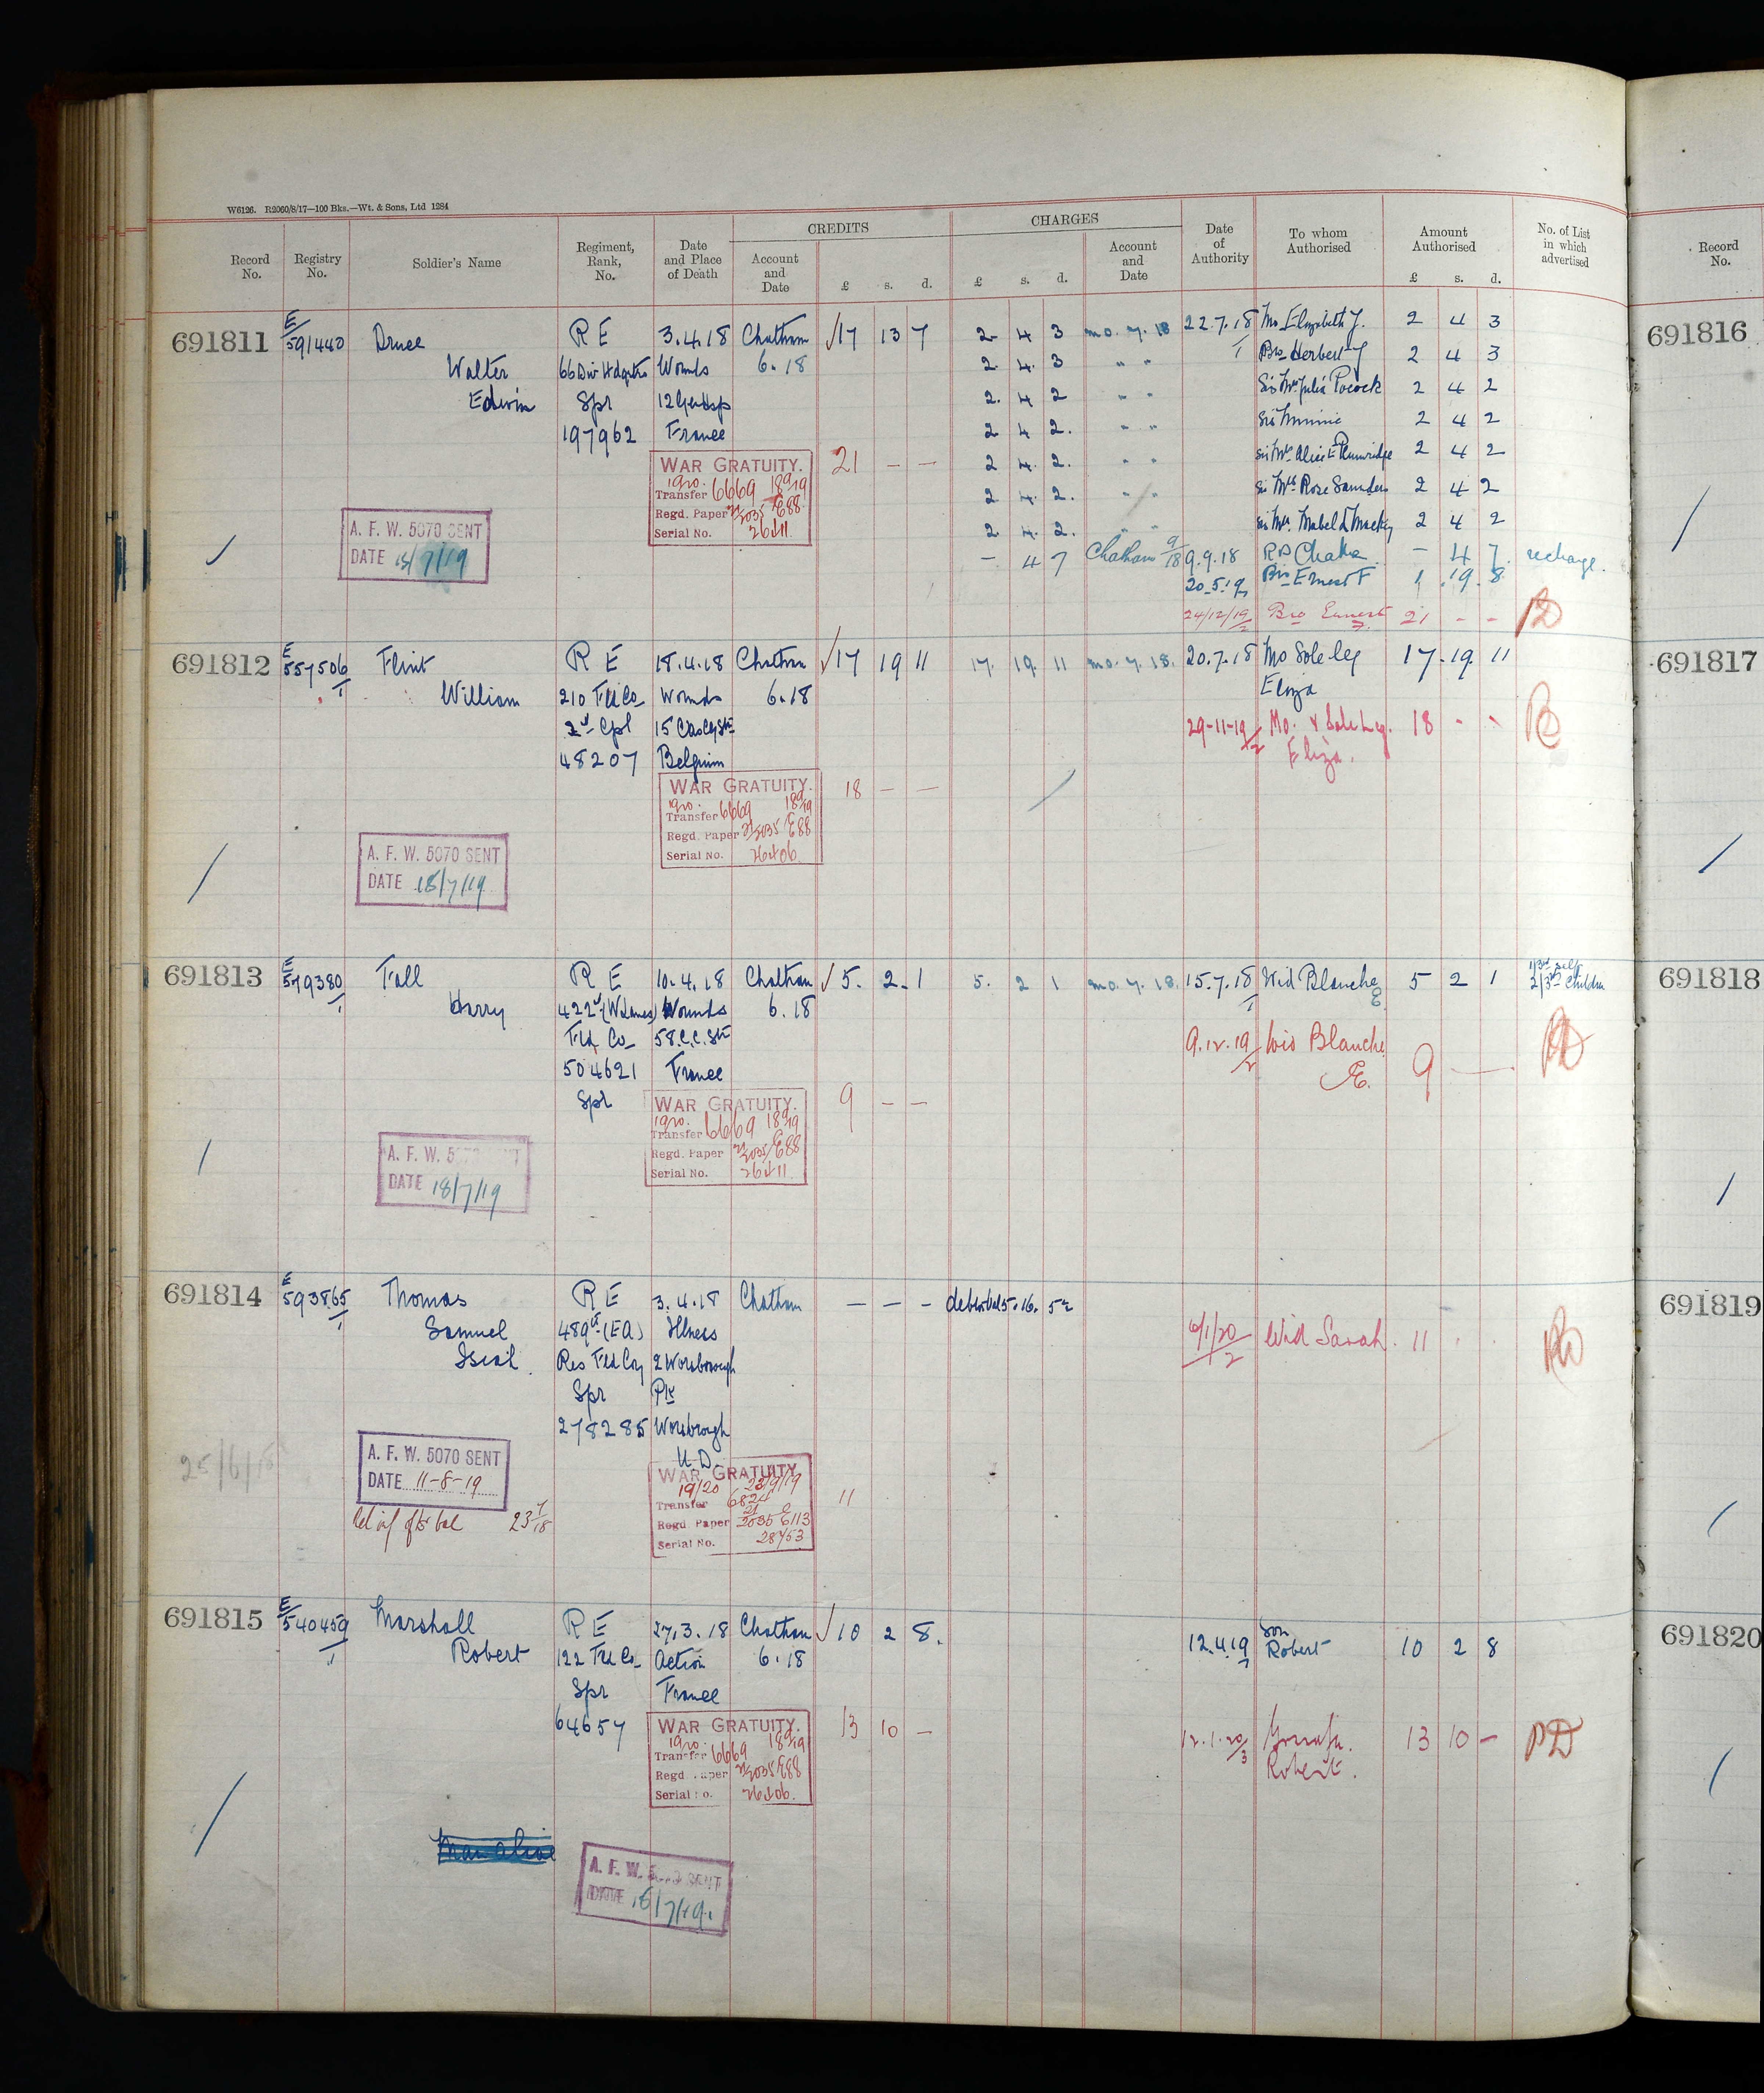 W6126. R2060/8/17—100 Bks.—Wt. & Sons, Ltd 1284
CREDITS CHARGES
Record No. Registry No. Soldier's Name Regiment, Rank, No. Date and Place of Death Account and Date £ s. d. £ s. d. Account and Date Date of Authority To whom Authorised Amount Authorised £ s. d. No. of List in which advertised
Record No.
691811 E/591440 Druce R E 3.4.18 Chatham √17 13 7 2 4 3 mo. 7. 18 22.7.18 Mo Elizabeth J. 2 4 3
691816
Walter 66 Div Hdqrtrs Wounds 6.18 2. 4. 3 " " Bro Herbert J 2 4 3
Edwin Spr 12 Gen Hsp 2. 4 2 " " Sis Mrs Julia Pocock 2 4 2
197962 France 2 4 2. " " Sis Minnie 2 4 2
WAR GRATUITY. 21 — — 2 4. 2. " " Sis Mrs Alice E Plumridge 2 4 2
Transfer 6669 18/9/19 2 4. 2. " " Sis Mrs Rose Saunders 2 4 2
Regd. Paper 21/2035 E88
Serial No. 2. 4. 2. " " Sis Mrs Mabel L Mackey 2 4 2
A. F. W. 5070 SENT
DATE 18/7/19
— 4 7 Chatham 9/18 9.9.18 — 4 7. recharge.
20.5.19 Bro Ernest F 1. 19. 8.
24/12/19 Bro Ernest F. 21 - - PD
691812 E/557506/1 Flint R E 18.4.18 Chatham √17 19 11 17. 19. 11 mo. 7. 18. 20.7.18 Mo Sole leg 17. 19. 11
691817
William 210 Fld Co Wounds 6.18 Eliza
2d Cpl 15 Cas Clg Stn 29-11-19/2 Mo. & Sole Leg. 18 - -
Eliza.
48207 Belgium
WAR GRATUITY. 18 — —
Transfer 6669 18/9/19
Regd. Paper 21/2035 E88
Serial No.
A. F. W. 5070 SENT
DATE 18/7/19
691813 E/579380/1 Fall R E 10.4.18 Chatham √5. 2. 1 5. 2 1 mo. 7. 18. 15.7.18 Wid Blanche E 5 2 1 1/3rd self 2/3rds children
691818
Harry 422d (W Lancs) Wounds 6.18
Fld Co 58.C.C.Stn 9.12.19/2 Wid Blanche E. 9 — —
504621 France
Spr WAR GRATUITY. 9 — —
Transfer 6669 18/9/19
Regd. Paper 21/2035 E88
Serial No.
A. F. W. 5070 SENT
DATE 18/7/19
691814 E/593865/1 Thomas R E 3.4.18 Chatham — — — debtor bal 5. 16. 5½
691819
Samuel 489th (EA) Illness 6/1/20/2 Wid Sarah. 11
Res Fld Coy 2 Worsborough
Spr Pk
278285 Worsbrough
U.D.
25/6/18
A. F. W. 5070 SENT
DATE 11-8-19
WAR GRATUITY
19/20 23/9/19
Transfer 6824 11
Regd. Paper 21/2035 E113
Serial No. 28753
691815 E/540459/1 Marshall R E 27.3.18 Chatham √10 2 8. 12.4.19 Son Robert 10 2 8
691820
Robert 122 Fld Co Action 6.18
Spr France
64657
WAR GRATUITY. 13 10 — 12.1.20/3 13 10 — PD
Robert.
Transfer 6669 18/9/19
Regd. Paper 21/2035 E88
Serial No.
A. F. W. SENT
DATE 18/7/19.